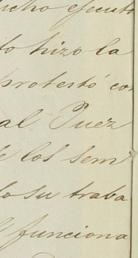 cho ejecut
to hizo la
protestó con
al Juez
e los Sem
o su traba
l funciona